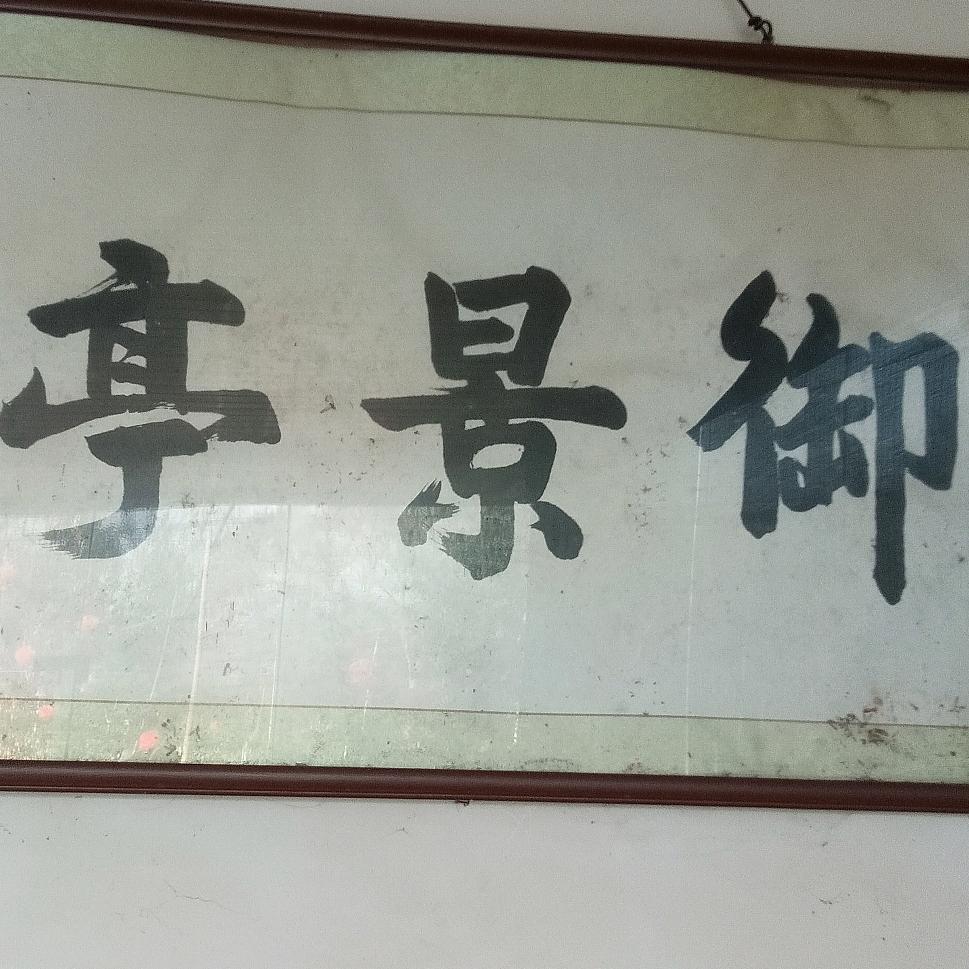 御景亭